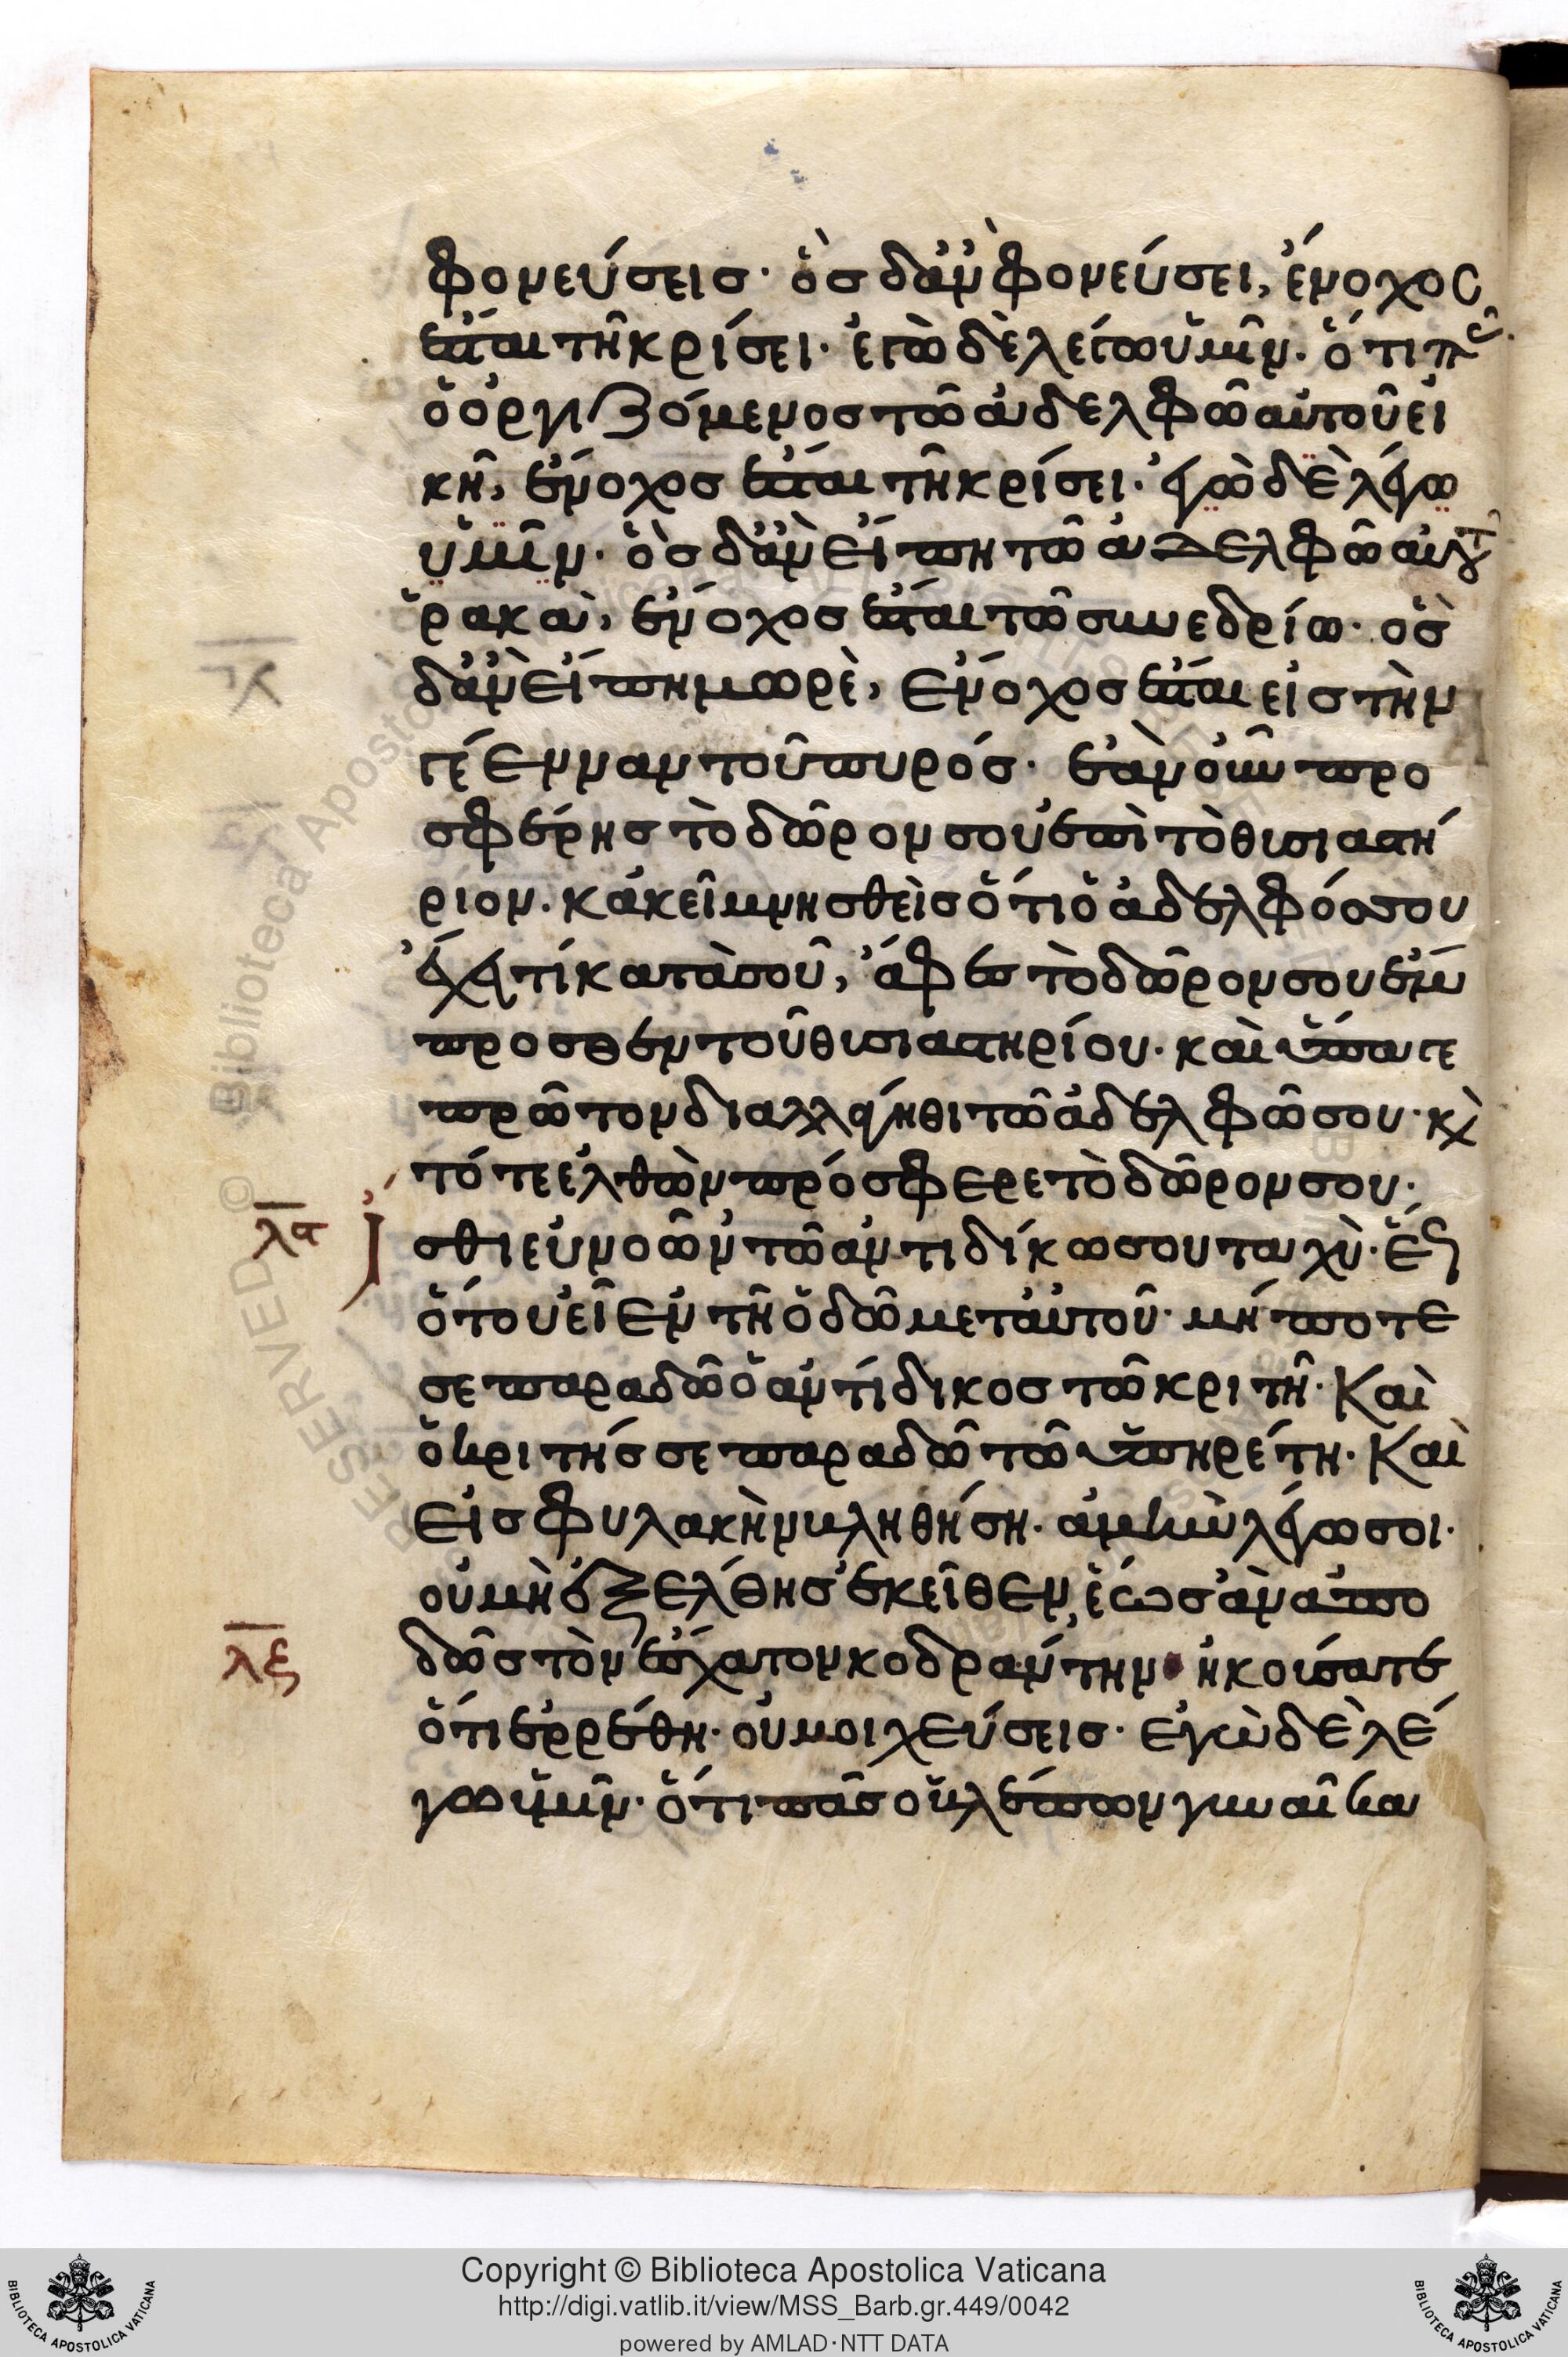 φονεύσεισ· ὃσ δἂν φονεύσει, ἔνοχοσ
ἔσται τῆ κρίσει· ἐγὼ δὲ λέγω ὑμῖν· ὅτι πᾶσ
ὁ ὀργιζόμενοσ τῶ ἀδελφῶ αὐτοῦ εἰ
κῆ, ἔνοχοσ ἔσται τῆ κρίσει· ἐγὼ δὲ λέγω
ὑμῖν· ὃσ δἂν εἴπη τῶ ἀδελφῶ αὐτοῦ
ῥακὰ, ἔνοχοσ ἔσται τῶ συνεδρίω· ὃσ
δἂν εἴπη μωρὲ, ἔνοχοσ ἔσται εἰσ τὴν
γέενναν τοῦ πυρόσ· ἐὰν οὖν προ
σφέρησ τὸ δῶρον σου ἐπὶ τὸ θυσιαστή
ριον· κἀκεῖ μνησθεὶσ ὅτι ὁ ἀδελφόσ σου
ἔχει τί κατὰ σοῦ, ἄφεσ τὸ δῶρον σου ἐμ
προσθεν τοῦ θυσιαστηρίου· καὶ ὕπαγε
πρῶτον διαλλάγηθι τῶ ἀδελφῶ σου· κὲ
τότε ἐλθὼν πρόσφερε τὸ δῶρον σου·
λα Ἴσθι εὐνοῶν τῶ ἀντιδίκω σου ταχὺ· ἕωσ
ὅτου εἶ ἐν τῆ ὁδῶ μετ αὐτοῦ· μήποτε
σε παραδῶ ὁ ἀντίδικοσ τῶ κριτῆ· Καὶ
ὁ κριτήσ σε παραδῶ τῶ ὑπηρέτη· Καὶ
εἰσ φυλακὴν κληθήση· ἀμὴν λέγω σοι·
οὐ μὴ ἐξέλθησ ἐκεῖθεν, ἕωσ ἂν ἀπο
λξ δῶσ τὸν ἔσχατον κοδράντην· ἠκούσατε
ὅτι ἐρρέθη· οὐ μοιχεύσεισ· ἐγὼ δὲ λέ
γω ὑμῖν· ὅτι πᾶσ ὁ βλέπων γυναῖκα
Copyright © Biblioteca Apostolica Vaticana
http://digi.vatlib.it/view/MSS_Barb.gr.449/0042
powered by AMLAD·NTT DATA
BIBLIOTECA APOSTOLICA VATICANA
BIBLIOTECA APOSTOLICA VATICANA